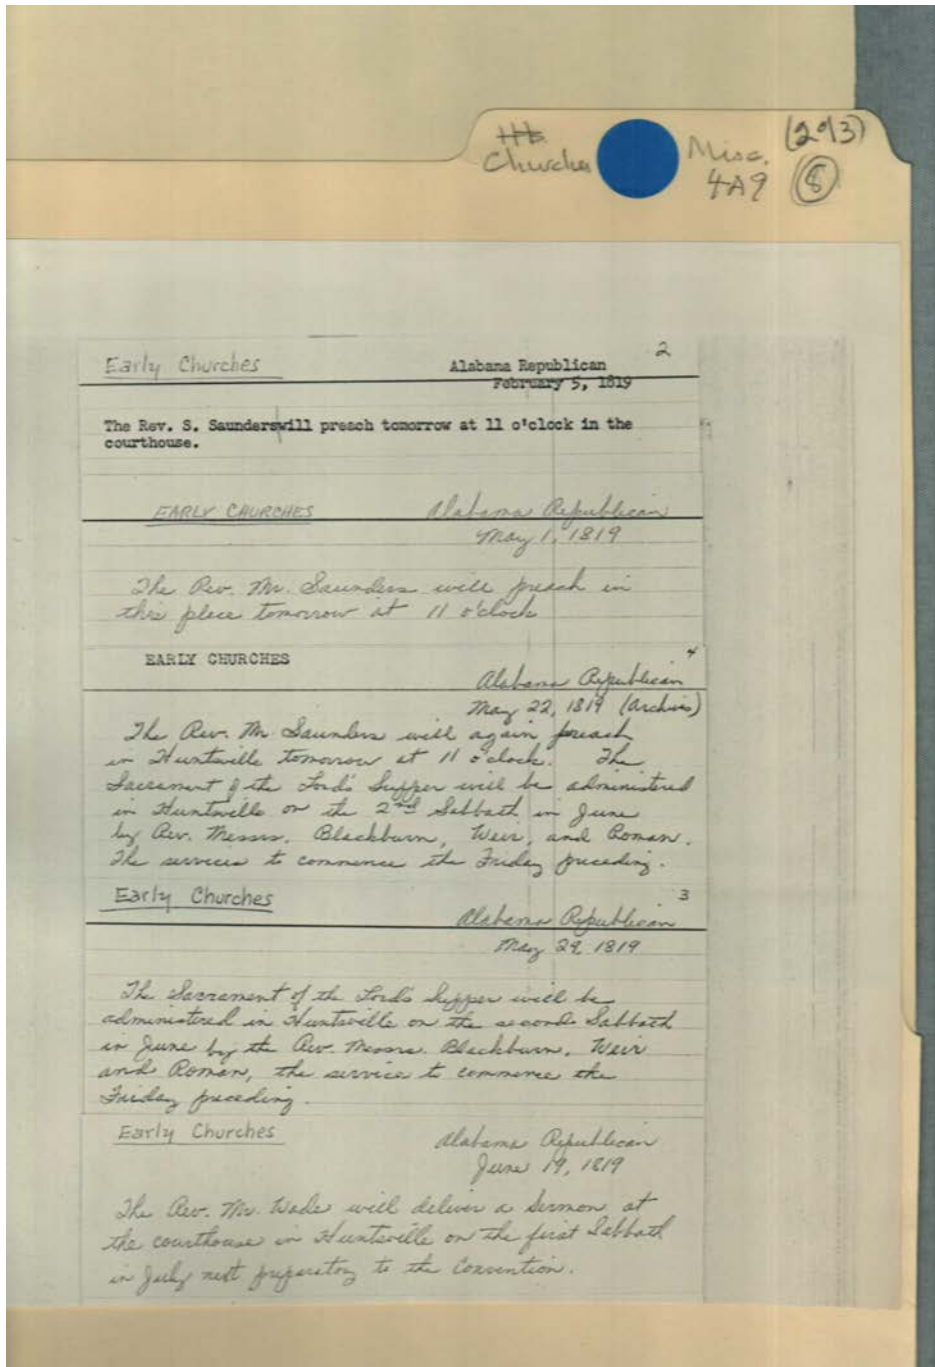 Hb
Churches
Misc.
4A9
(293)
8
2
Early Churches
Alabama Republican
February 5, 1819
The Rev. S. Saunderswill preach tomorrow at 11 o'clock in the
courthouse.
EARLY CHURCHES
Alabama Republican
May 1, 1819
The Rev. Mr. Saunders will preach in
this place tomorrow at 11 o'clock
EARLY CHURCHES
4
Alabama Republican
May 22, 1819 (Archives)
The Rev. Mr. Saunders will again preach
in Huntsville tomorrow at 11 o'clock. The
Sacrament of the Lord's Supper will be administered
in Huntsville on the 2nd Sabbath in June
by Rev. Messrs. Blackburn, Weir, and Roman.
The services to commence the Friday preceding.
Early Churches
3
Alabama Republican
May 29, 1819
The Sacrament of the Lord's Supper will be
administered in Huntsville on the second Sabbath
in June by the Rev. Messrs. Blackburn, Weir
and Roman, the service to commence the
Friday preceding.
Early Churches
Alabama Republican
June 19, 1819
The Rev. Mr. Wade will deliver a Sermon at
the courthouse in Huntsville on the first Sabbath
in July next preparatory to the Convention.